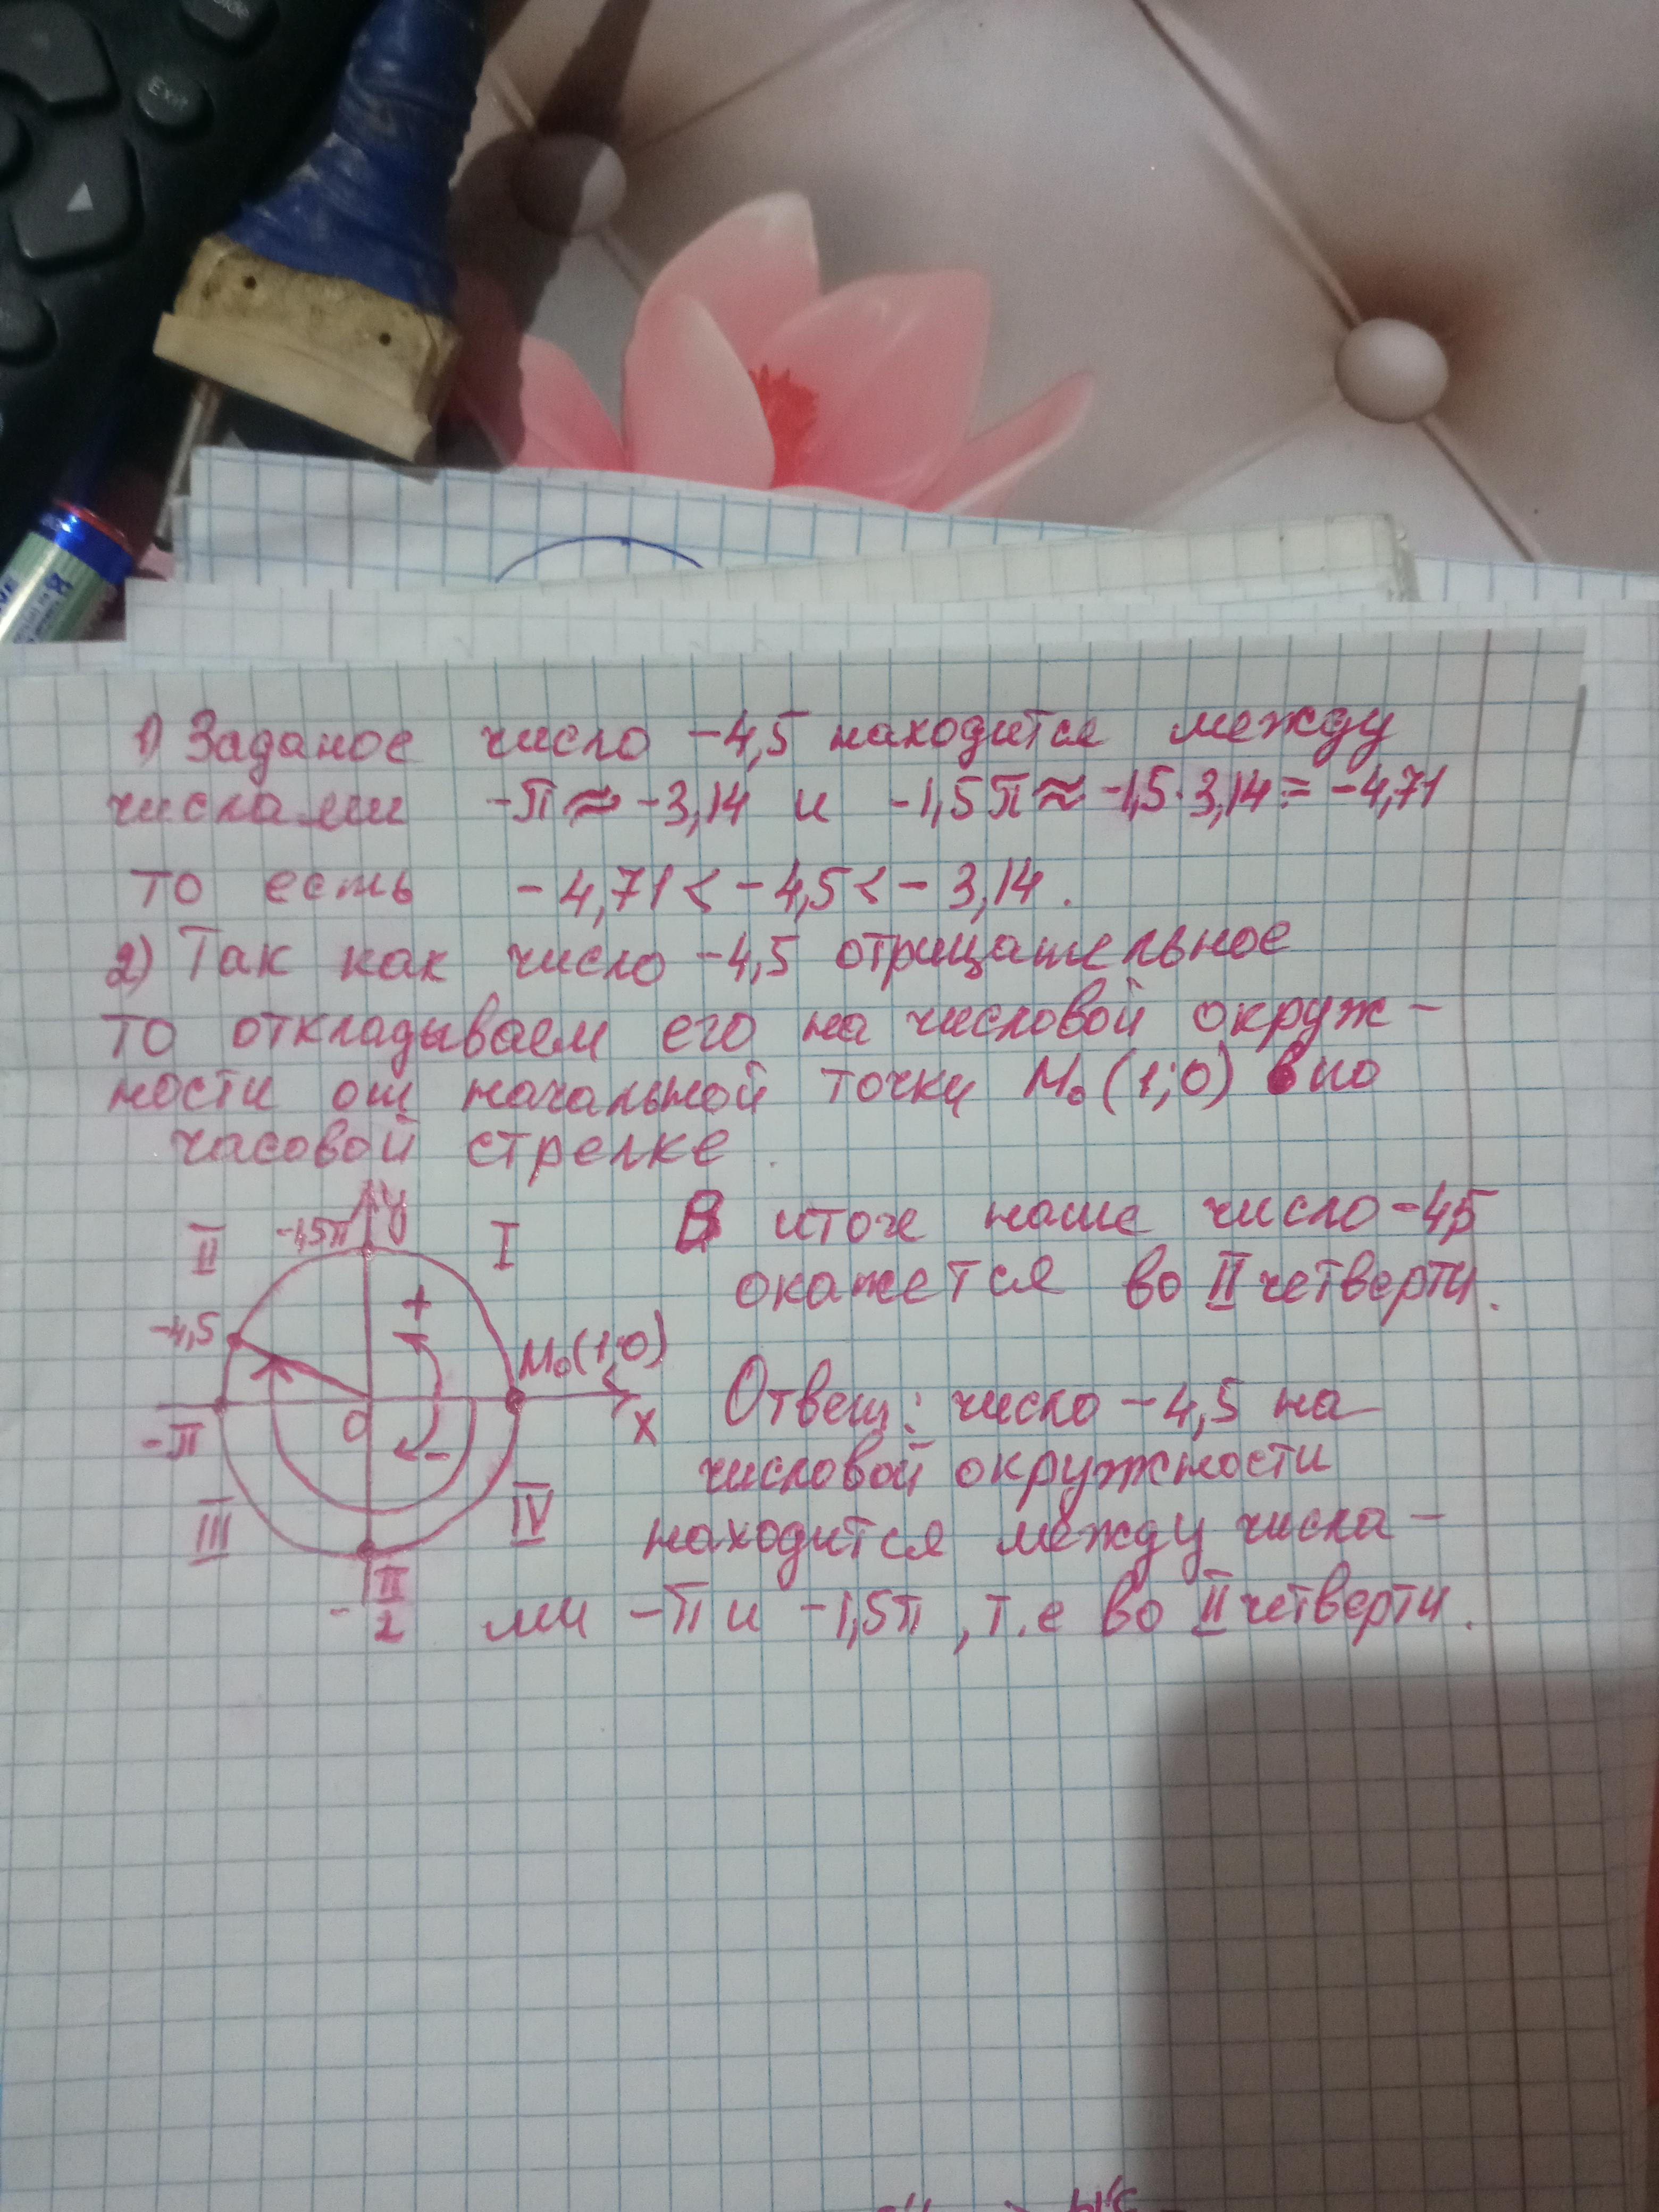 Exit
1) Заданое число -4,5 находится между
числами -π ≈ -3,14 и -1,5π ≈ -1,5·3,14 = -4,71
то есть -4,71 < -4,5 < - 3,14.
2) Так как число -4,5 отрицательное
то откладываем его на числовой окруж-
ности от начальной точки M₀(1;0) в по
часовой стрелке.
II -1,5π y I
В итоге наше число -4,5
окажется во II четверти.
-4,5 + M₀(1;0)
-π O - x
Ответ: число -4,5 на
числовой окружности
III IV
находится между числа-
-π/2
ми -π и -1,5π, т.е во II четверти.